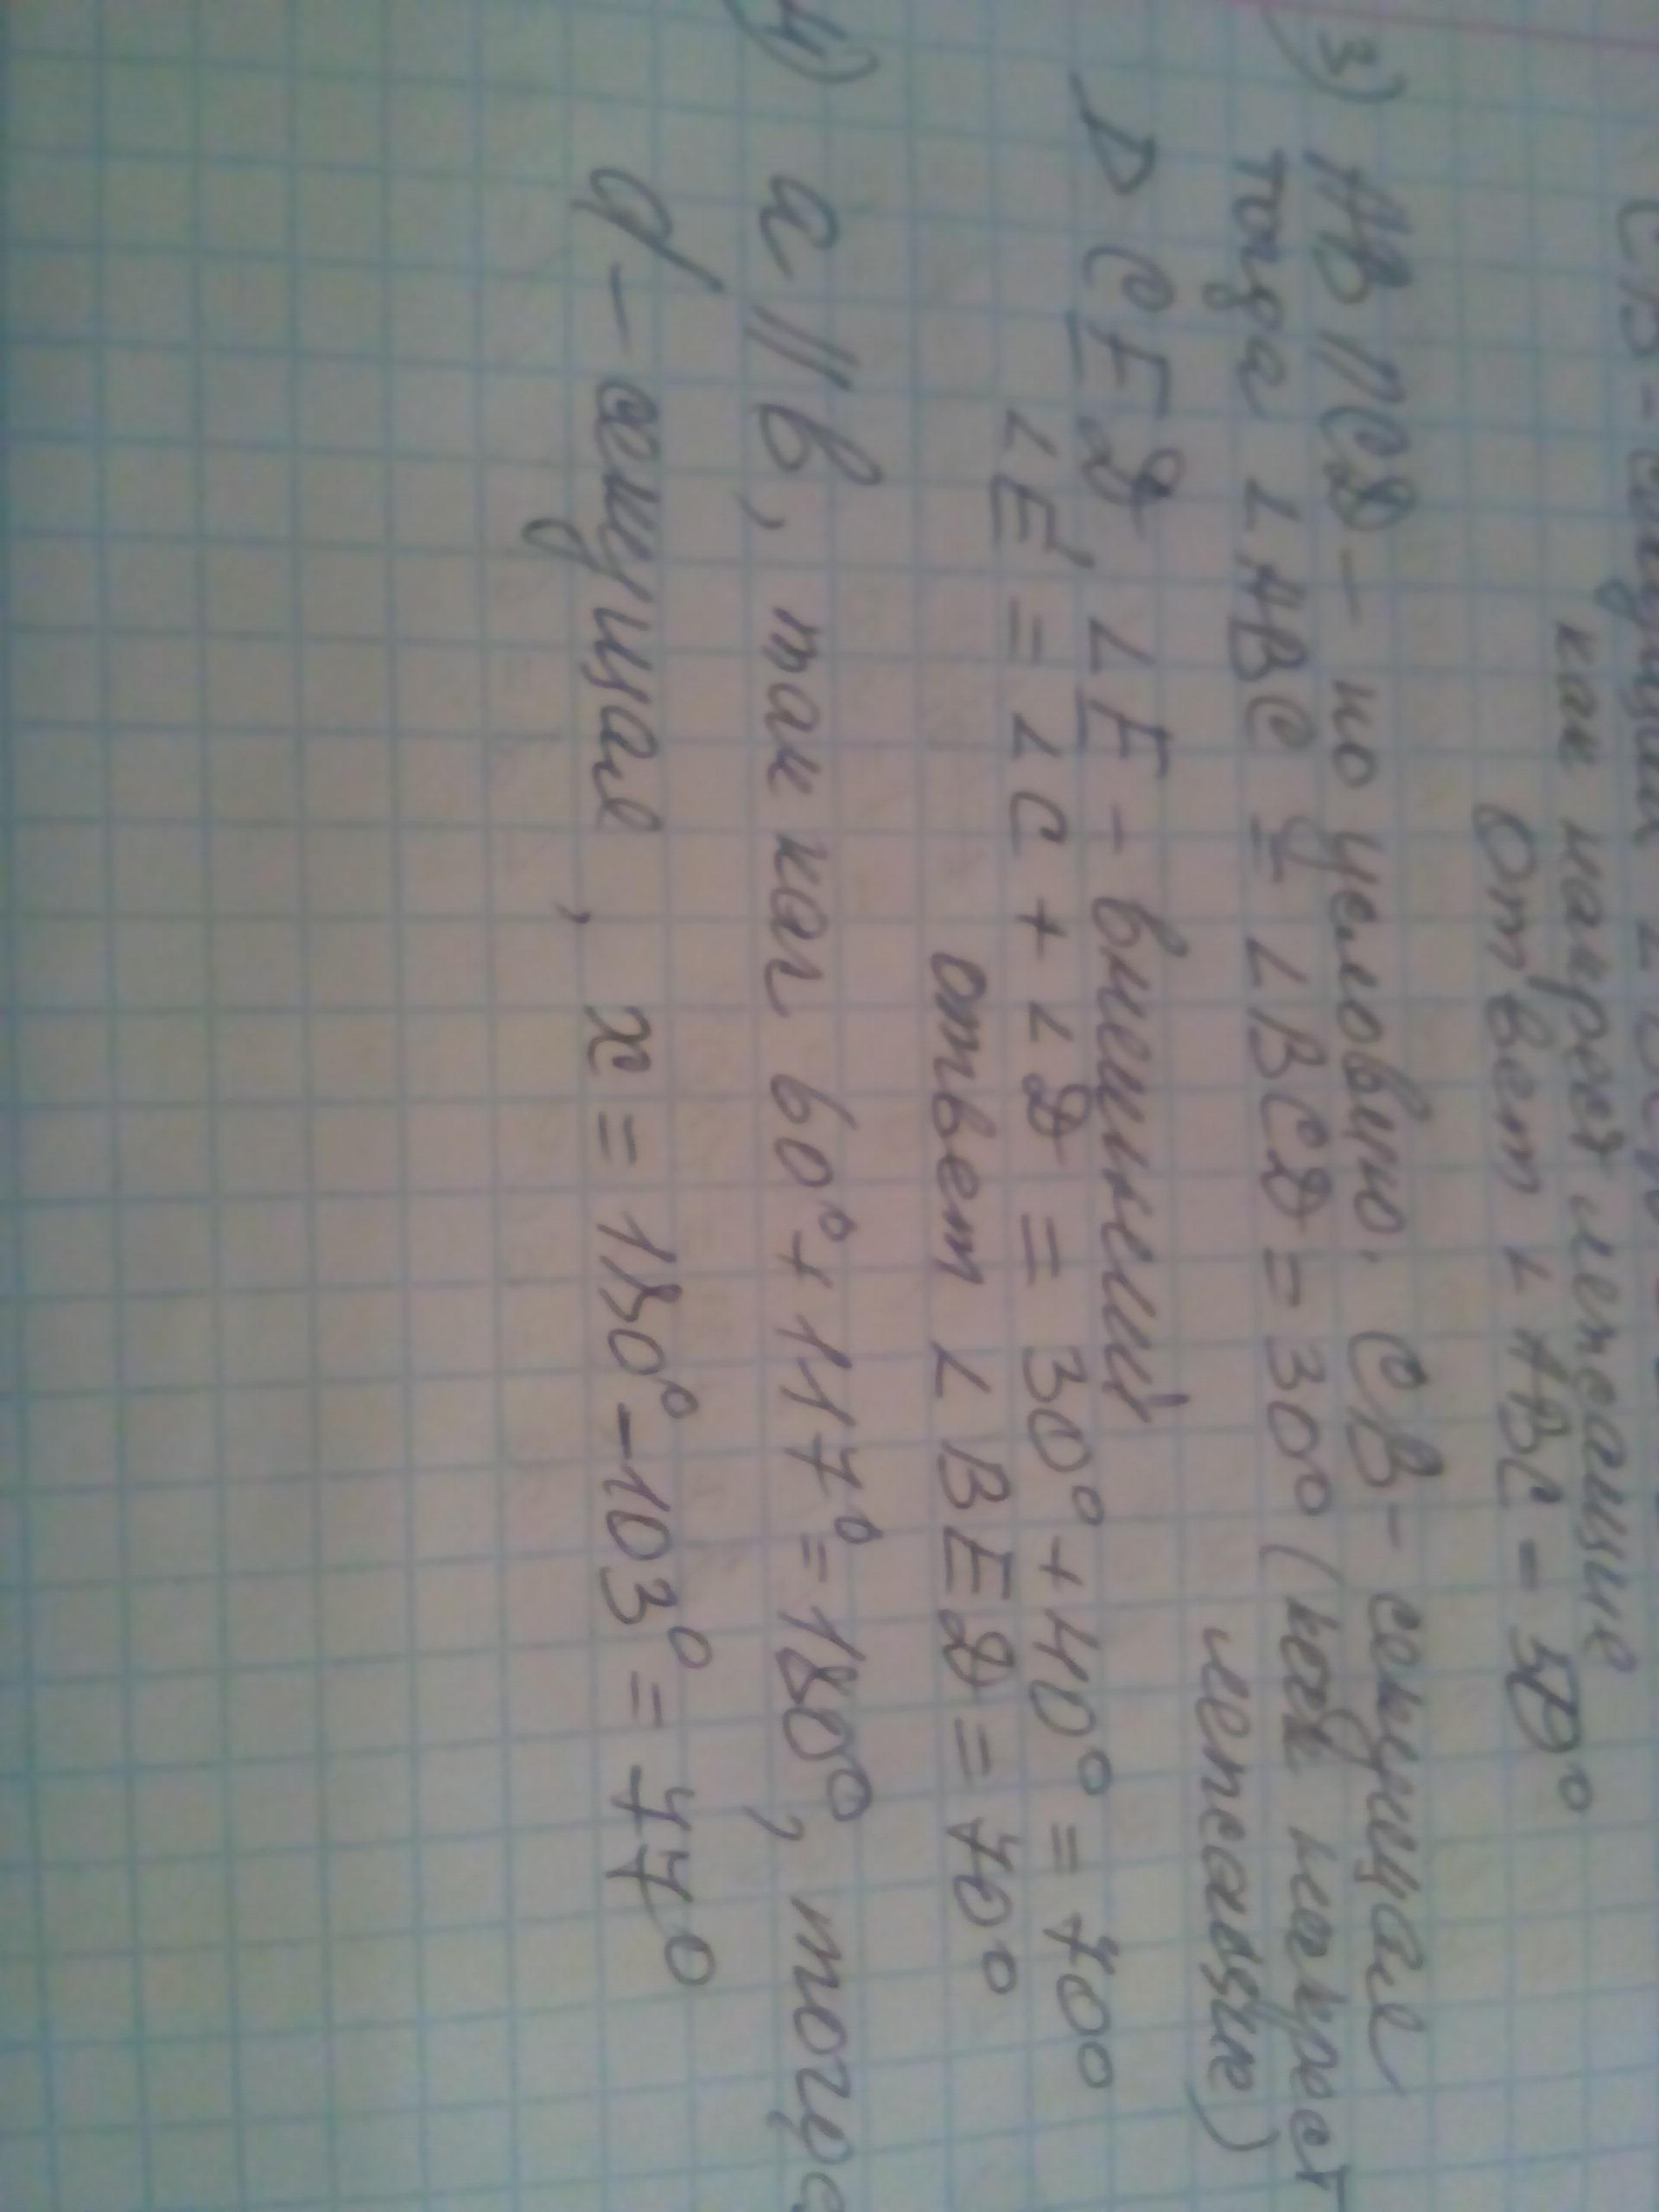 СВ - секущая
как накрест лежащие
Ответ ∟ABC = 50°
3) AB ∩ СД - по условию. СВ - секущая
тогда ∟ABC = ∟BCД = 30° (как накрест
лежащие)
▷ CEД, ∟E - внешний
∟E = ∟C + ∟Д = 30° + 40° = 70°
ответ ∟BEД = 70°
4) a // b, так как 60° + 117° = 180°, тогда
d - секущая, x = 180° - 103° = 77°